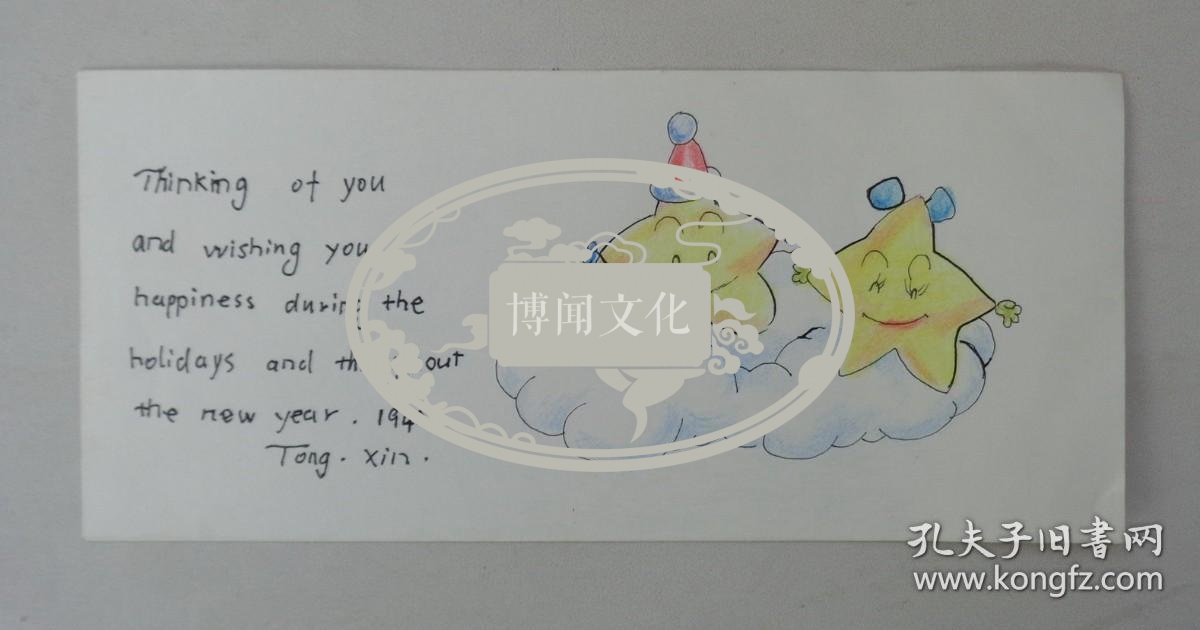 Thinking of you
and wishing you
happiness during the
holidays and out
the new year.
Tong. Xin.
博闻文化
孔夫子旧书网
www.kongfz.com